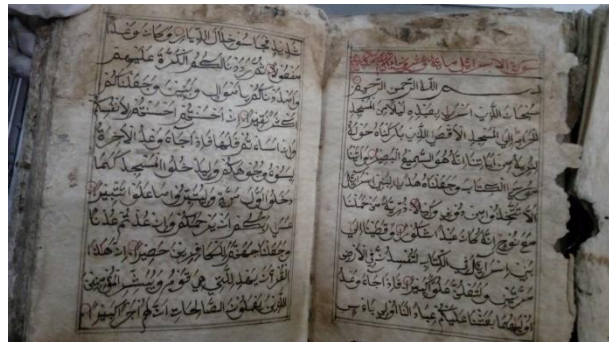 سورة الاسرائيل
بسم الله الرحمن الرحيم
سبحان الذي اسرى بعبده ليلا من المسجد
الحرام الى المسجد الاقصى الذي باركنا حوله
لنريه من اياتنا انه هو السميع البصير واتينا
موسى الكتاب وجعلناه هدى لبني اسرائيل
الا تتخذوا من دوني وكيلا ذرية من حملنا
مع نوح انه كان عبدا شكورا وقضينا الى
بني اسرائيل في الكتاب لتفسدن في الارض
مرتين ولتعلن علوا كبيرا فاذا جاء وعد
اوليهما بعثنا عليكم عبادا لنا اولي باس
شديد فجاسوا خلال الديار وكان وعدا
مفعولا ثم رددنا لكم الكرة عليهم
وامددناكم باموال وبنين وجعلناكم
اكثر نفيرا ان احسنتم احسنتم لانفسكم
وان اساتم فلها فاذا جاء وعد الاخرة
ليسوؤا وجوهكم وليدخلوا المسجد كما
دخلوه اول مرة وليتبروا ما علوا تتبيرا
عسى ربكم ان يرحمكم وان عدتم عدنا
وجعلنا جهنم للكافرين حصيرا ان هذا
القران يهدي للتي هي اقوم ويبشر المؤمنين
الذين يعملون الصالحات ان لهم اجرا كبيرا